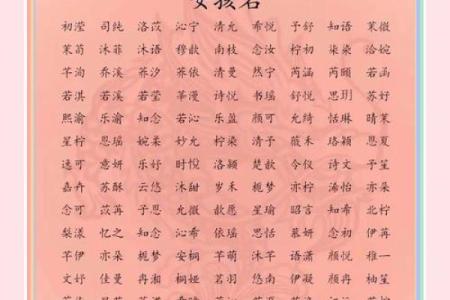 女孩名
初滢 司纯 洛苡 沁宁 清允 希悦 予舒 知语 茉微
茉萌 沐菲 沐语 穆歆 南枝 念汝 柠初 柒柒 洽婉
芊洵 乔溪 荞汐 荞依 清曼 然宁 芮涵 芮颐 若函
若淇 若溪 若莹 莘漫 诗悦 书瑶 舒悦 思玥 苏妤
熙渝 乐渝 知念 若沁 乐盈 颜可 允绮 恬琳 晴茉
星柠 恩瑶 婉柔 妙允 柠染 清予 薇禾 珞颖 恩夏
逑可 意妍 乐妤 时悦 洛颖 楚歆 令仪 诗文 予笙
嘉卉 苏酥 云悠 沐甜 岁禾 栀梦 亦柠 浠怡 亦朵
念可 苡苒 子恩 允微 歆愿 星瑜 昭言 知希 北柠
梨漾 忆之 知念 沁希 依瑶 思恬 慕妍 念初 伊苒
芊伊 亦朵 栀梦 安桐 芊萌 沐芊 语潇 颜悦 稚一
文妤 佳曼 冉湘 桐娅 若羽 悠南 伊凝 颜冉 柚笙